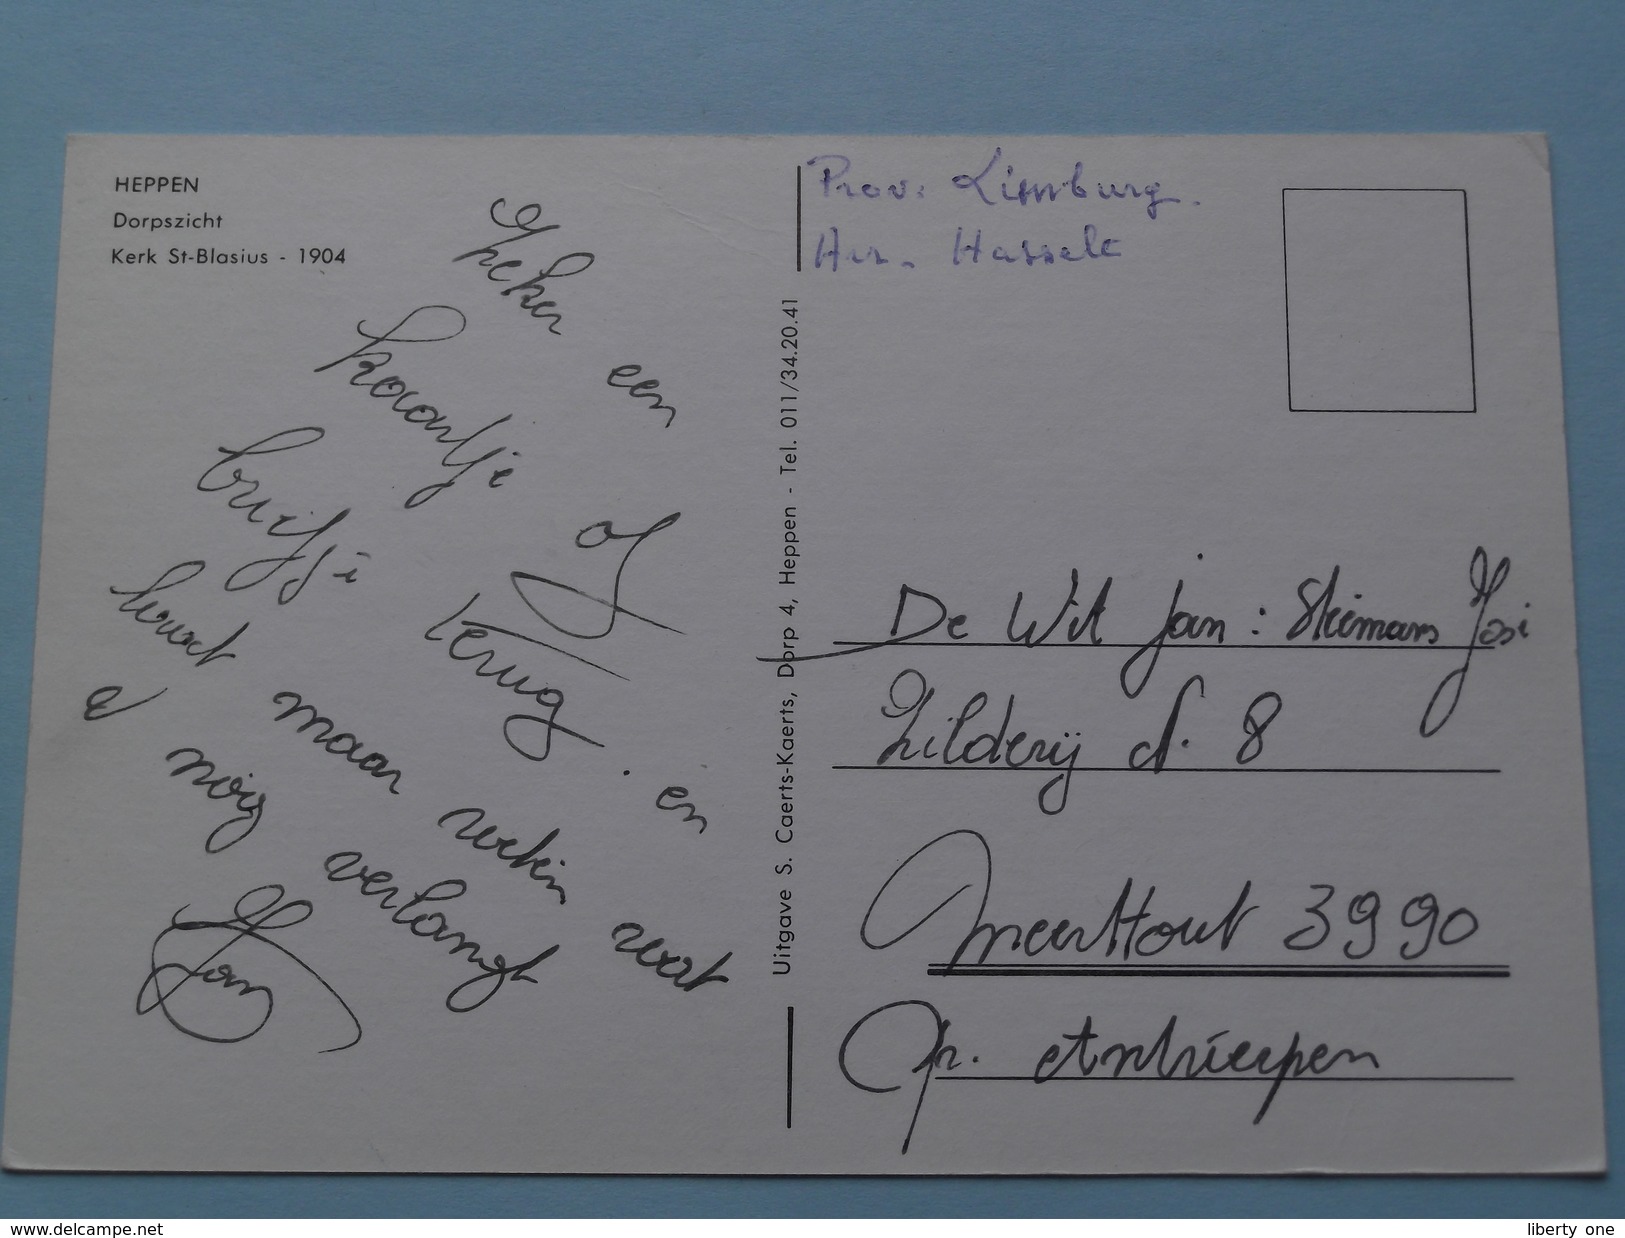 HEPPEN
Dorpszicht
Kerk St-Blasius - 1904
Zeker een
kaartje of
briefje terug. en
laat maar weten wat
e nog verlangt
Jan
Uitgave S. Caerts-Kaerts, Dorp 4, Heppen - Tel. 011/34.20.41
Prov. Limburg.
Arr. Hasselt
De Wit Jan :
Zilderij 8
Meerhout 3990
Pr. Antwerpen
www.delcampe.net
liberty one